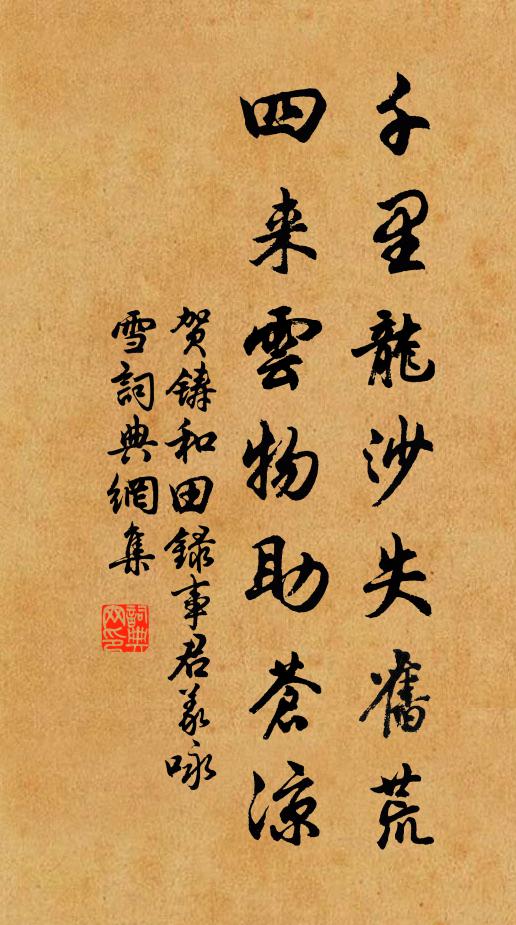 千里龍沙失舊荒
四来雲物助蒼涼
賀鑄和田録事君義咏
雪詞典網集
詞典網印